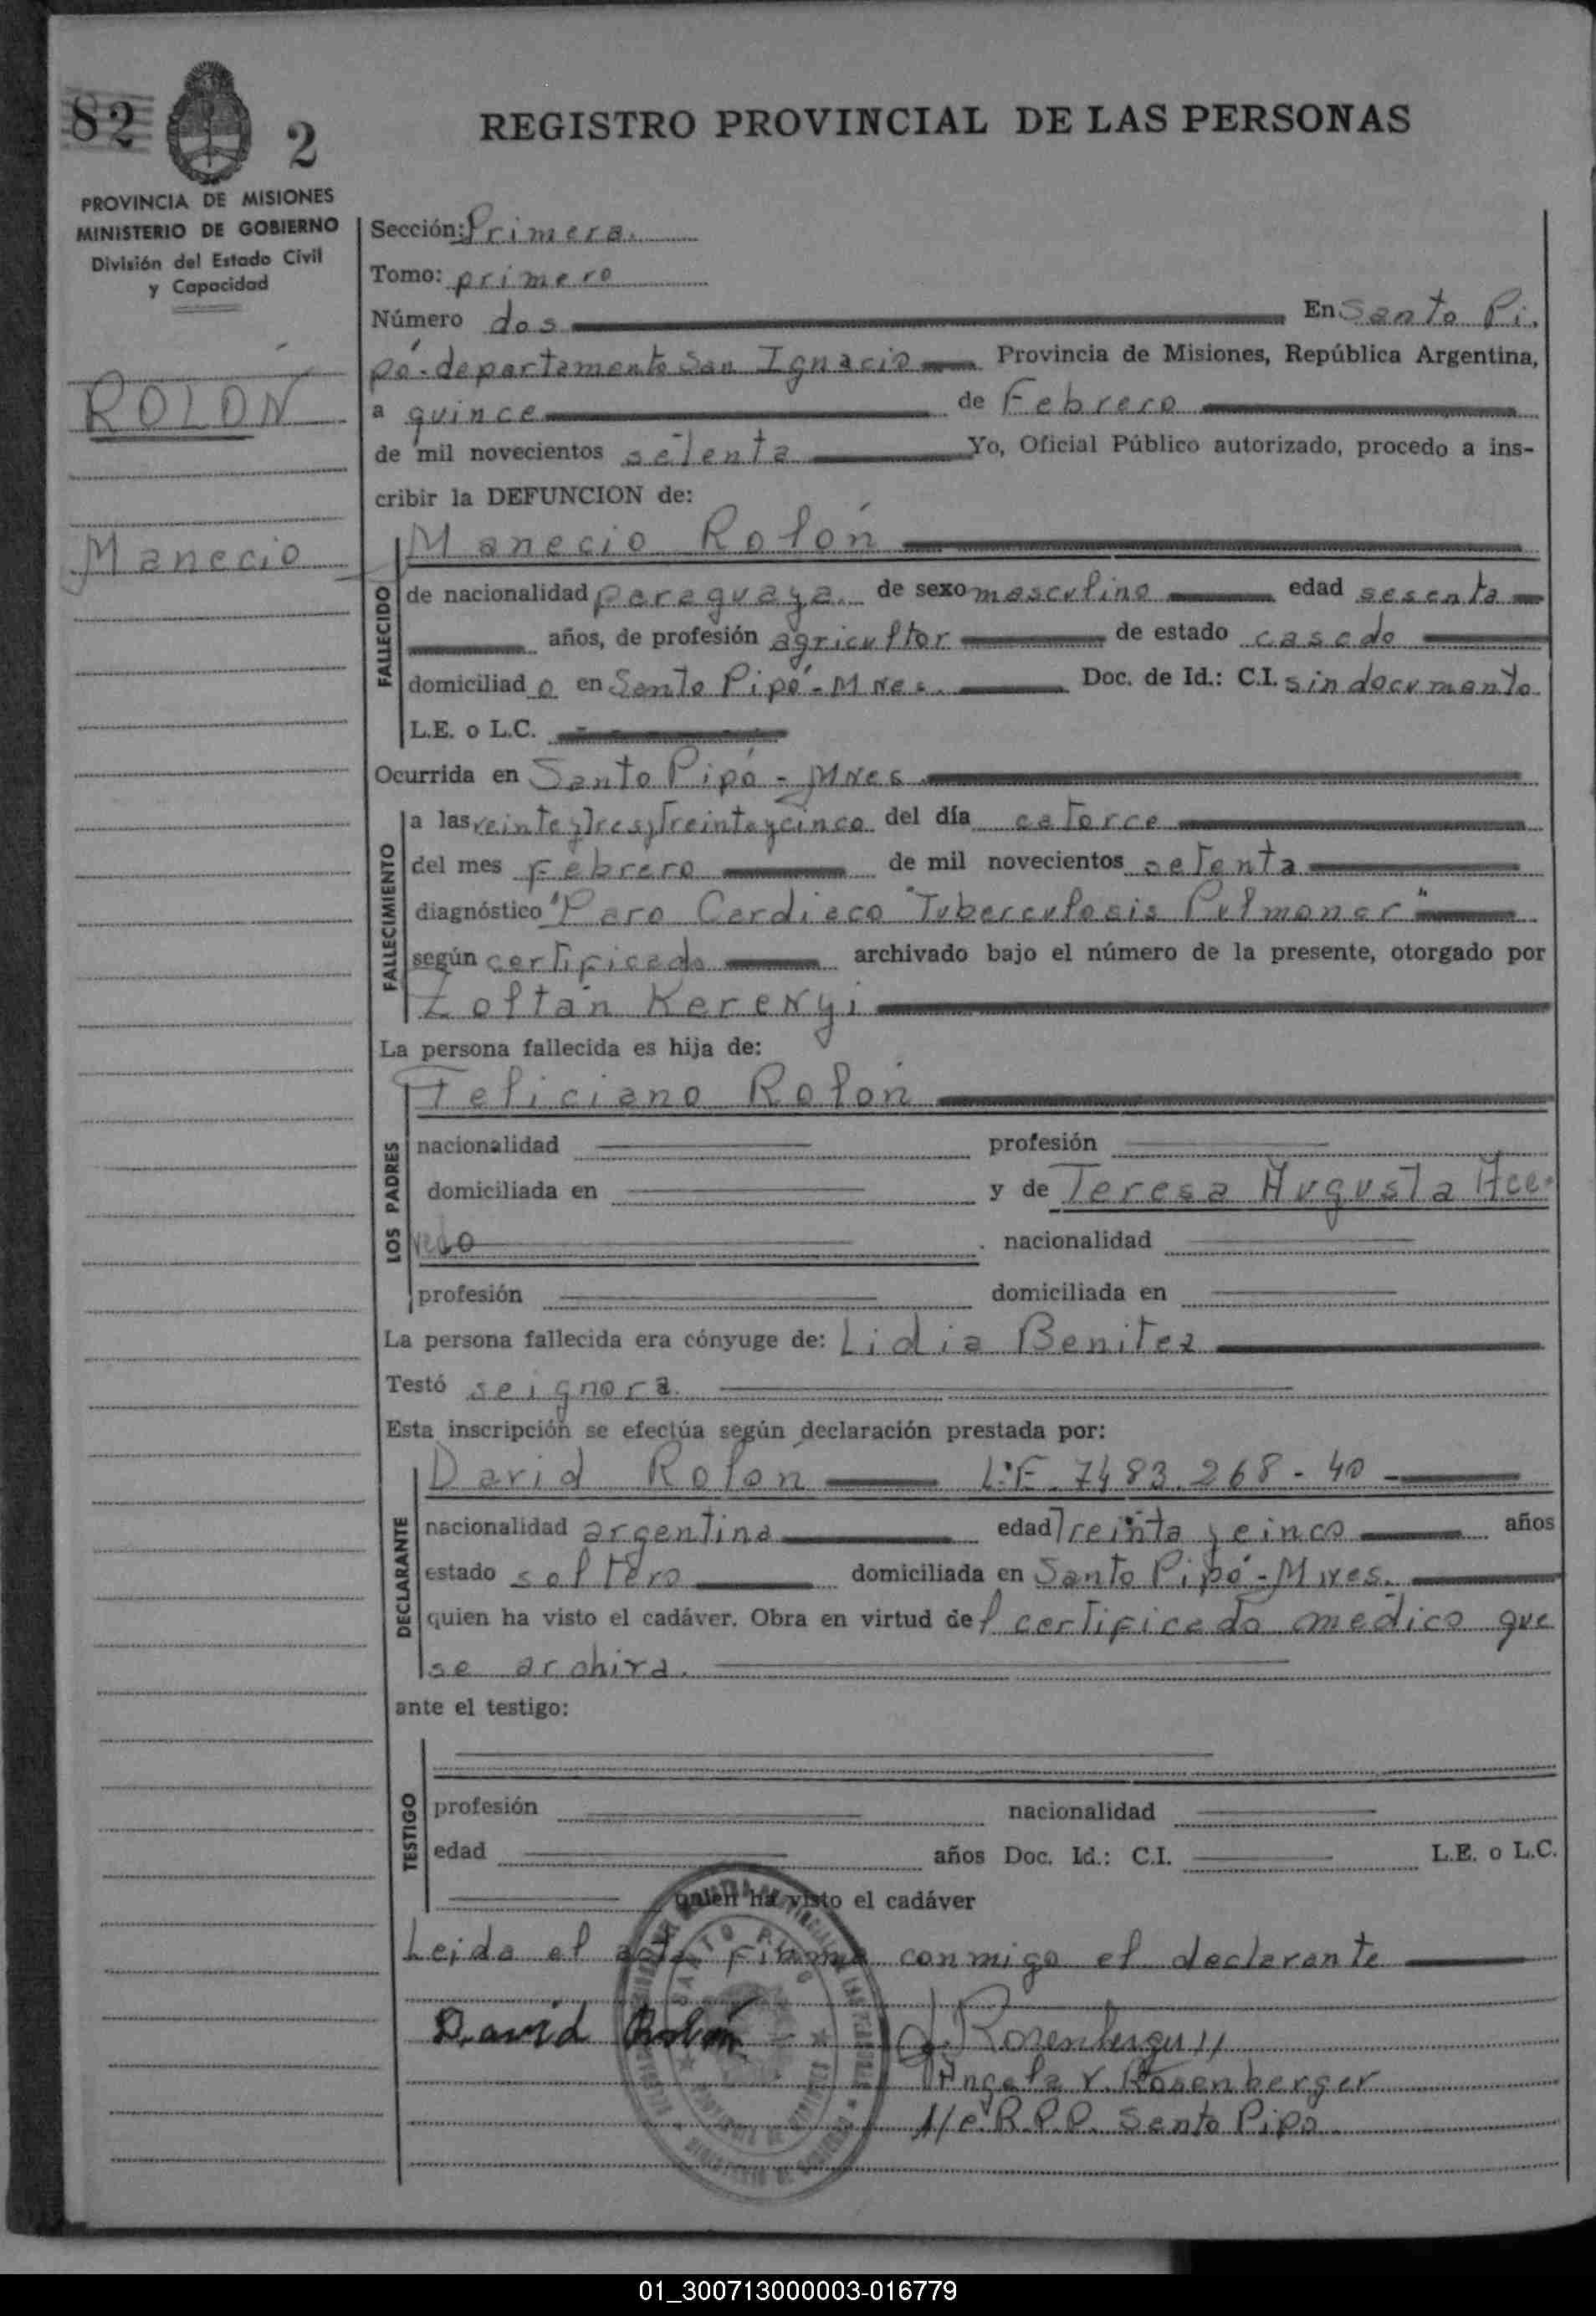 82 2
REGISTRO PROVINCIAL DE LAS PERSONAS
PROVINCIA DE MISIONES
MINISTERIO DE GOBIERNO
División del Estado Civil
y Capacidad
ROLÓN
Manecio
Sección: Primera.
Tomo: primero
Número dos En Santo Pi.
pó - departamento San Ignacio Provincia de Misiones, República Argentina,
a quince de Febrero
de mil novecientos setenta Yo, Oficial Público autorizado, procedo a ins-
cribir la DEFUNCION de:
Manecio Rolón
FALLECIDO
de nacionalidad paraguaya. de sexo masculino edad sesenta
años, de profesión agricultor de estado casado
domiciliad o en Santo Pipó - Mnes. Doc. de Id.: C.I. sin documento
L.E. o L.C.
Ocurrida en Santo Pipó - Mnes
FALLECIMIENTO
a las veinte y tres y treinta y cinco del día catorce
del mes Febrero de mil novecientos setenta
diagnóstico "Paro Cardiaco "Tuberculosis Pulmonar"
según certificado archivado bajo el número de la presente, otorgado por
Zoltán Kerenyi
La persona fallecida es hija de:
Feliciano Rolón
LOS PADRES
nacionalidad profesión
domiciliada en y de Teresa Augusta Ace-
nacionalidad
profesión domiciliada en
La persona fallecida era cónyuge de: Lidia Benitez
Testó se ignora.
Esta inscripción se efectúa según declaración prestada por:
DECLARANTE
David Rolón L.E. 7483.268 - 40 -
nacionalidad argentina edad treinta y cinco años
estado soltero domiciliada en Santo Pipó - Mnes.
quien ha visto el cadáver. Obra en virtud de l certificado medico que
se archiva.
ante el testigo:
TESTIGO
profesión nacionalidad
edad años Doc. Id.: C.I. L.E. o L.C.
quien ha visto el cadáver
Leida el acta firma conmigo el declarante
David Rolón
Rosenberger
Angela V. Rosenberger
A/c R.P.P. Santo Pipó
SANTO PIPO
01_300713000003-016779